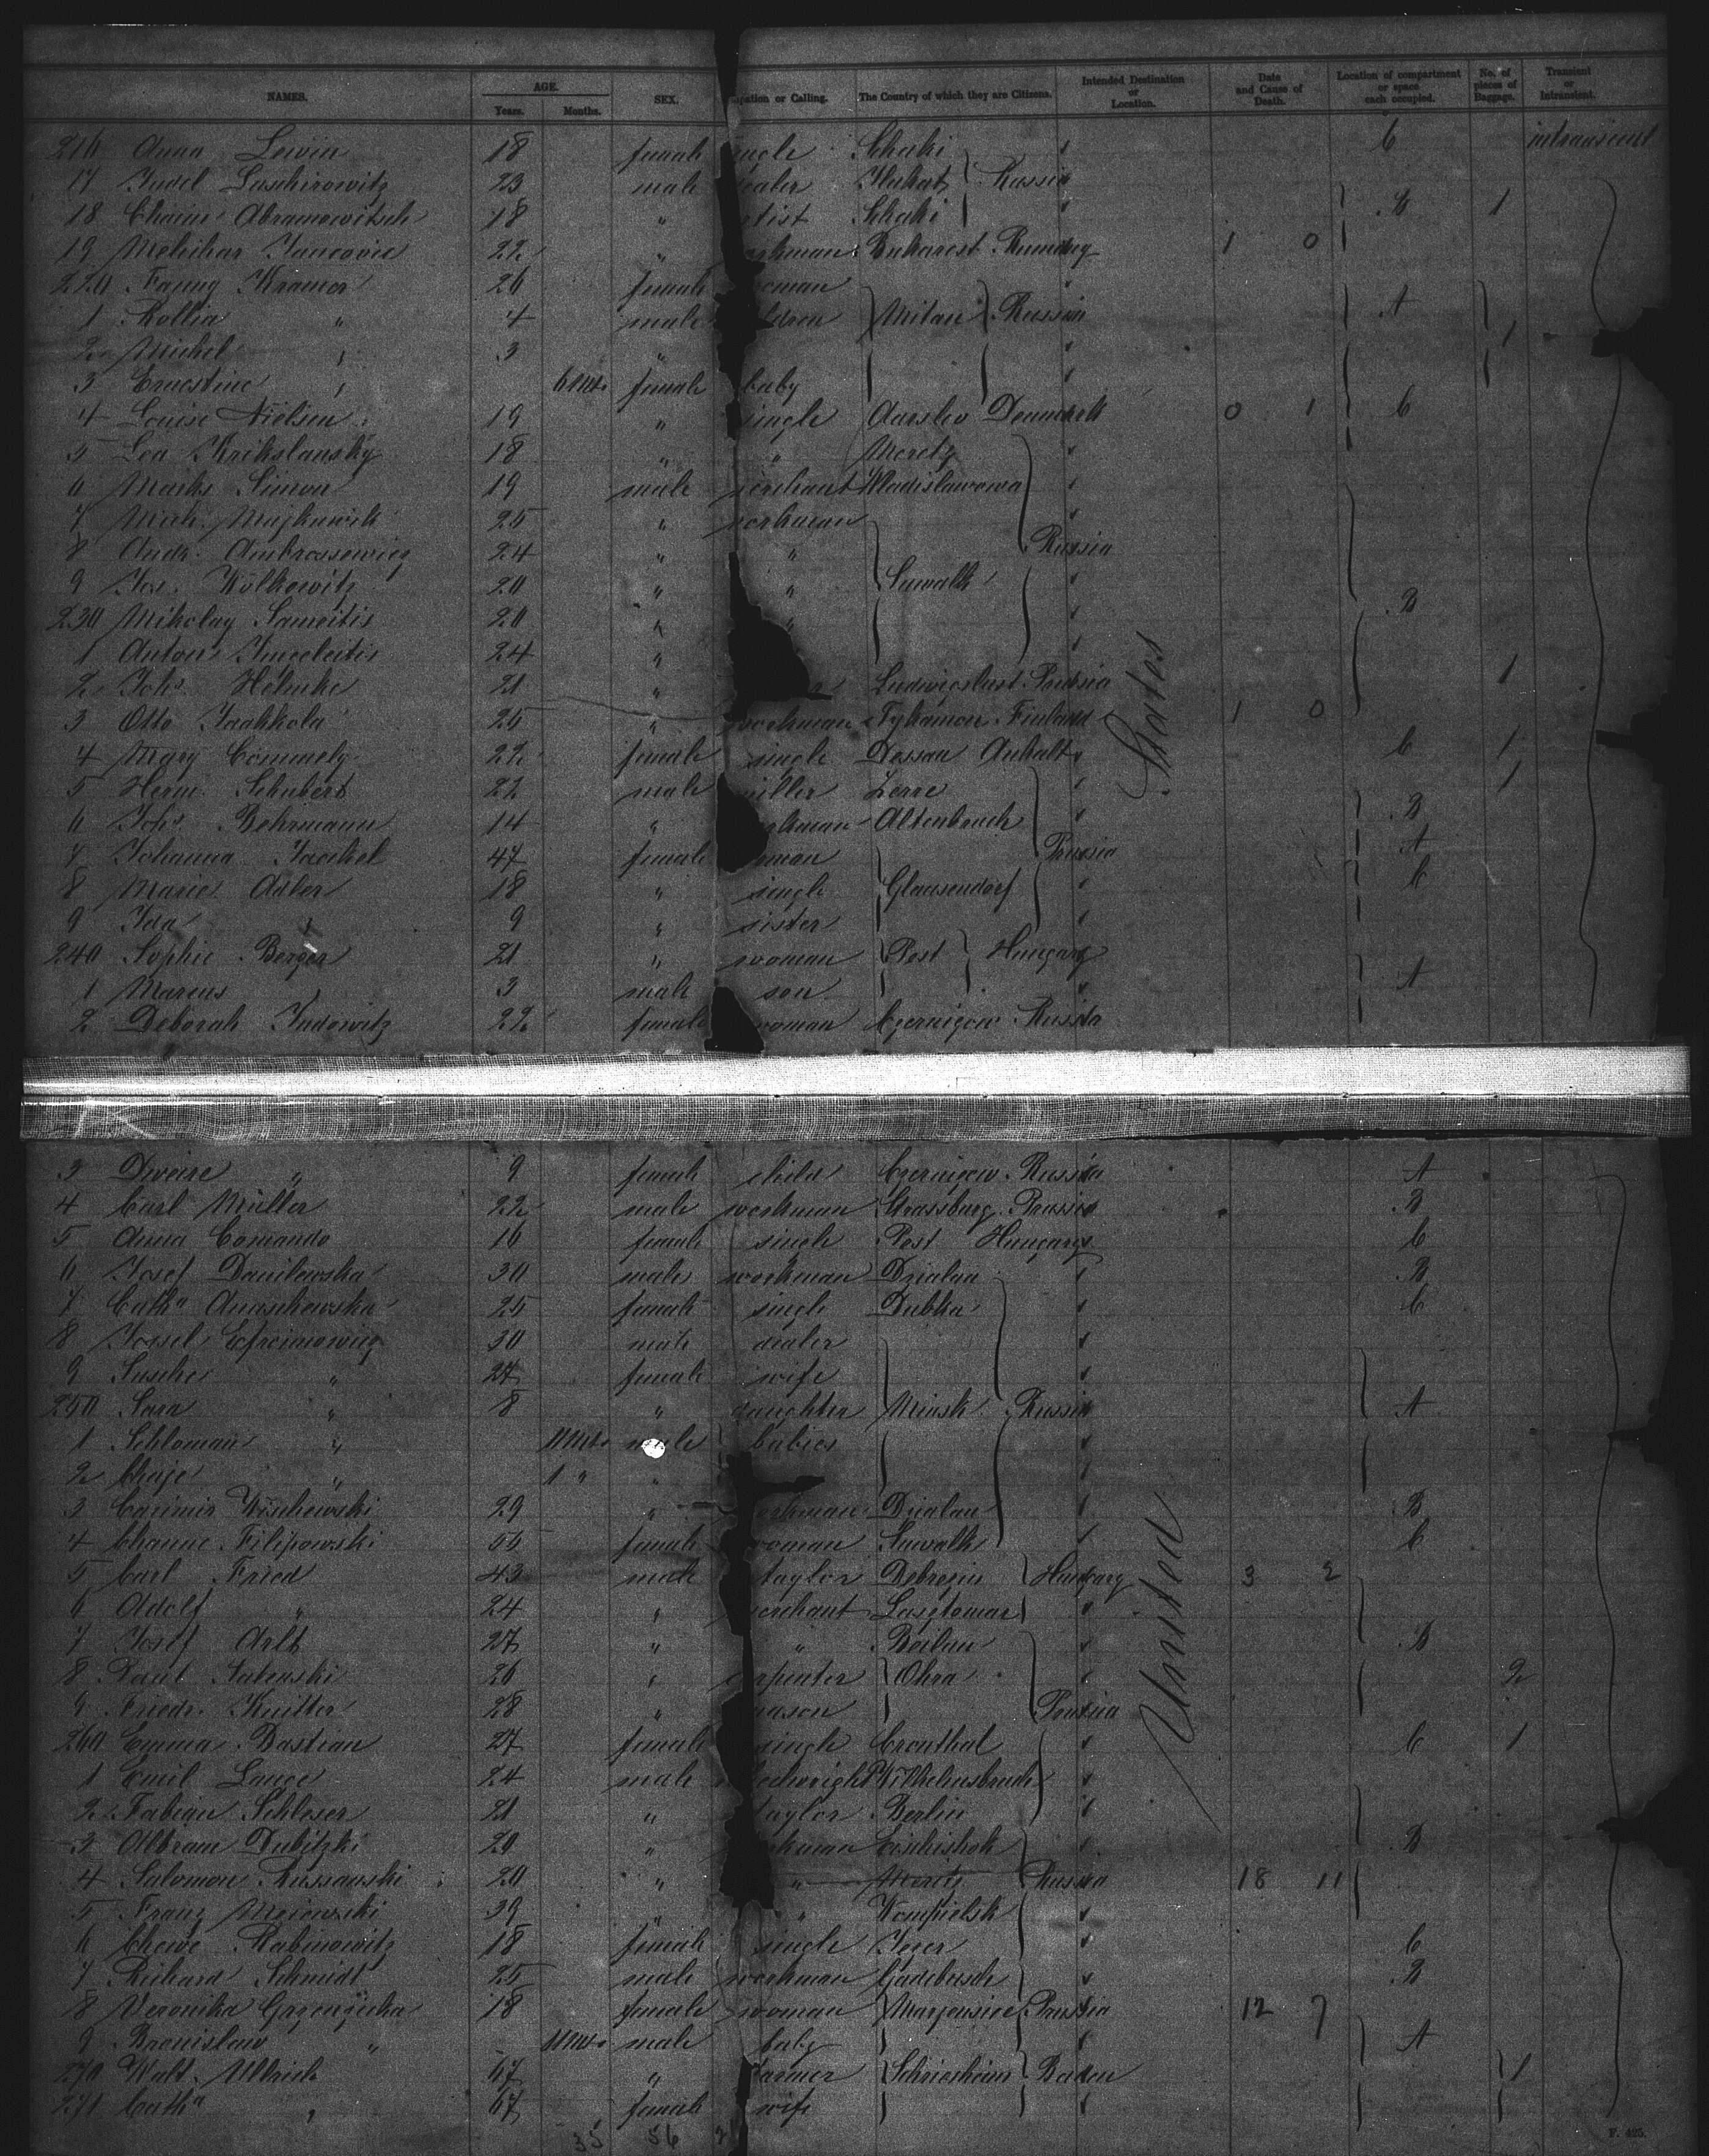 NAMES. AGE. Years. Months. SEX. upation or Calling. The Country of which they are Citizens. Intended Destination or Location. Date and Cause of Death. Location of compartment or space each occupied. No. of pieces of Baggage. Transient or Intransient.
216 Anna Lewin 18 female ingle Schaki C intransient
17 Judel 23 male ealer Russia
18 Chaim Abramowitsch 18 " tist Schaki B 1
19 Melichar Jancovic 22 " orkman Bukarest 1 0
220 Fanny Kramer 26 female oman
1 Kollia " 4 male ildren Mitau Russia A
2 Michel " 3 " 1
3 Ernestine " 6 Mts. female baby
4 Louise Nielsen 19 " single Aarslev Denmark 0 1 C
5 Lea Krikslansky 18 " " Meretz
6 Marks Simon 19 male merchant Wladislawowa
7 25 " workman
8 Andr. Ambrossewicz 24 " " Russia
9 Jos. Wolkowitz 20 " " Suwalk
230 Mikolay Sameitis 20 " " B
1 Anton 24 "
2 Johs. Helmke 21 " Ludwigslust Prussia 1
3 Otto Jaakkola 25 " workman Finland 1 0
4 Mary 22 female single Dessau Anhalt C 1
5 Herm. Schubert 22 male miller Zerre 1
6 Johs. Behrmann 14 " orkman Altenbruch B
7 Johanna Jaeckel 47 female oman Prussia A
8 Marie Adler 18 " single Glausendorf C
9 Ida " 9 " sister
240 Sophie Berger 21 " woman Pest Hungary
1 Marcus " 3 male son A
2 Deborah Judowitz 22 female woman Czernigow Russia
3 Dweire " 9 female child Czernigow Russia A
4 Carl Müller 22 male workman Strassburg Prussia B
5 Anna Comando 16 female single Pest Hungary C
6 Josef Danilewska 30 male workman Dzialau B
7 Catha Anaschewska 25 female single Dubka C
8 Jossel Efroimowicz 30 male dealer
9 Susche " 27 female wife
250 Sara " 8 " daughter Minsk Russia A
1 Schloman " 11 Mts. male babies
2 Chaje " 1 " "
3 Casimir Wischewski 29 " orkman Dzialau B
4 Channe Filipowski 55 female woman Suwalk C
5 Carl Fried 43 male taylor Debrezin Hungary 3 2
6 Adolf " 24 " merchant
7 Josef Arlt 27 " " B
8 Paul 26 " arpenter Ohra 2
9 Friedr. Knitter 28 " mason Prussia
260 Emma Bastian 27 female single Cronthal C 1
1 Emil Lange 24 male Wilhelmsbruch
2 Fabian Schleser 21 " taylor Berlin
3 Abram Dubitzki 20 " orkman Eischishok B
4 Salomon Russauski 20 " " Meretz Russia 18 11
5 Franz Meiewski 39 " " Wompielsk
6 Chewe Rabinowitz 18 female single C
7 Richard Schmidt 25 male workman Gadebusch B
8 Veronika 18 female woman Prussia 12 7
9 Bronislaw " 11 Mts. male baby A
270 Walt. Ullrich 67 " farmer Schriesheim Baden 1
271 Catha " 67 female wife
35 56
United States